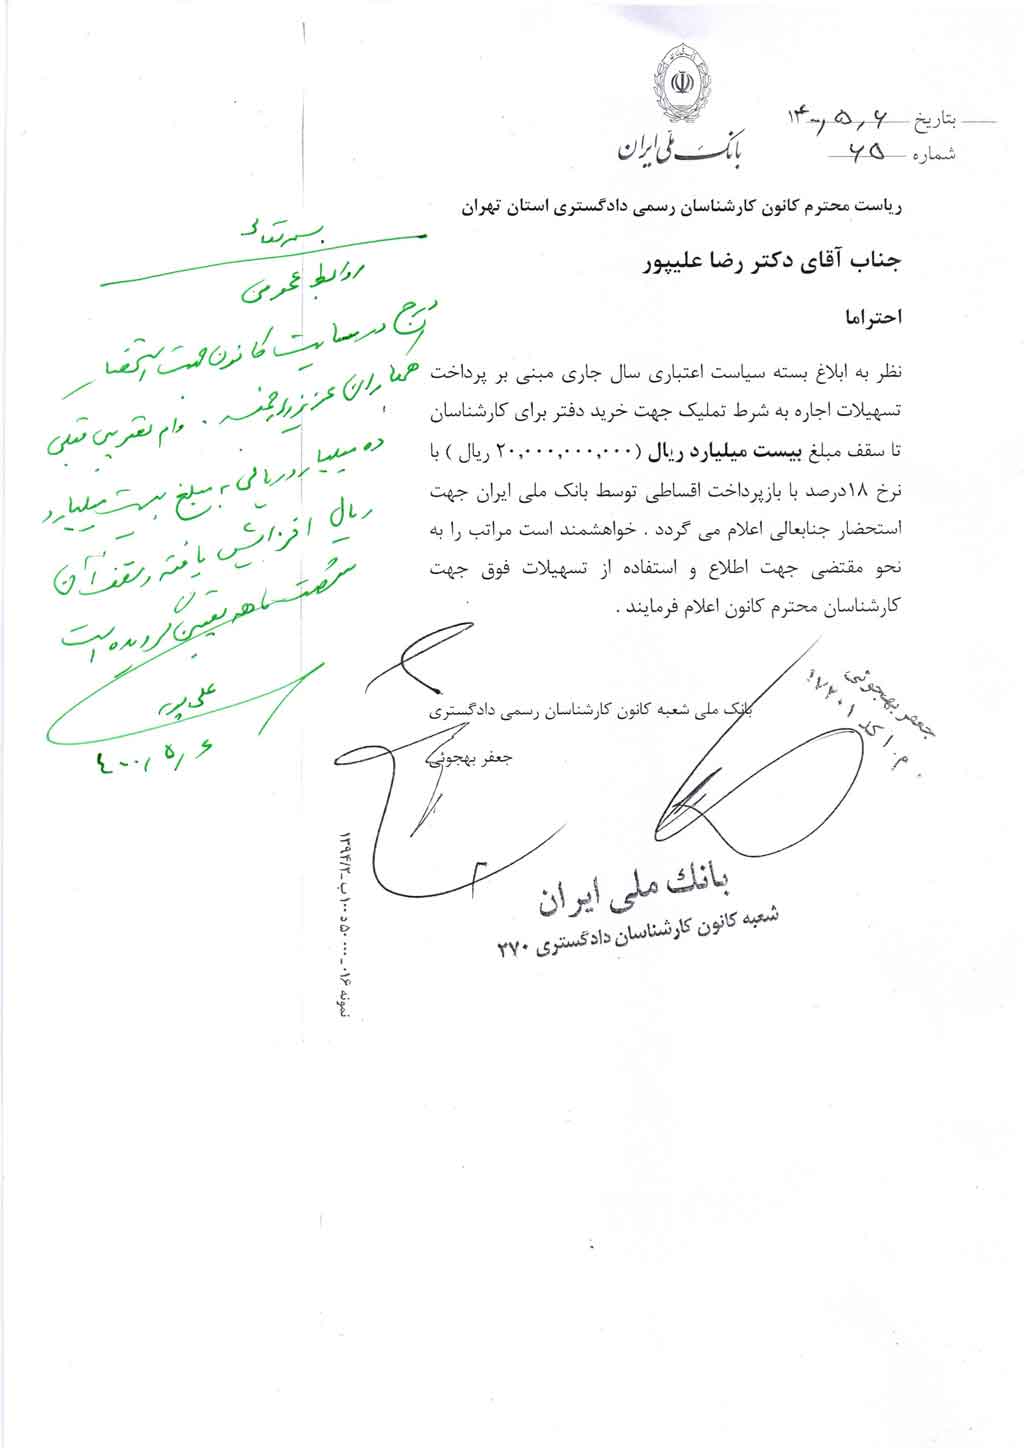 بانک ملی ایران
بتاریخ ۱۴۰۰/۵/۶
شماره ۶۵
ریاست محترم کانون کارشناسان رسمی دادگستری استان تهران
جناب آقای دکتر رضا علیپور
احتراما
نظر به ابلاغ بسته سیاست اعتباری سال جاری مبنی بر پرداخت
تسهیلات اجاره به شرط تملیک جهت خرید دفتر برای کارشناسان
تا سقف مبلغ بیست میلیارد ریال (۲۰,۰۰۰,۰۰۰,۰۰۰ ریال ) با
نرخ ۱۸درصد با بازپرداخت اقساطی توسط بانک ملی ایران جهت
استحضار جنابعالی اعلام می گردد . خواهشمند است مراتب را به
نحو مقتضی جهت اطلاع و استفاده از تسهیلات فوق جهت
کارشناسان محترم کانون اعلام فرمایند .
بانک ملی شعبه کانون کارشناسان رسمی دادگستری
جعفر بهجوئی
جعفر بهجوئی
کد ۱۷۲۰۱
بانک ملی ایران
شعبه کانون کارشناسان دادگستری ۲۷۰
بسمه تعالی
روابط عمومی
درج در سایت کانون جهت استحضار
همکاران عزیز و ارجمند . وام قبلی
ده میلیارد ریالی به مبلغ بیست میلیارد
ریال افزایش یافته و سقف آن
شصت ماهه تعیین گردیده است
علی پور
۴۰۰/۵/۶
نمونه ۰۱۶ـ ۵۰۰۰۰ د ۱۰۰ ب ـ ۱۳۹۴/۲